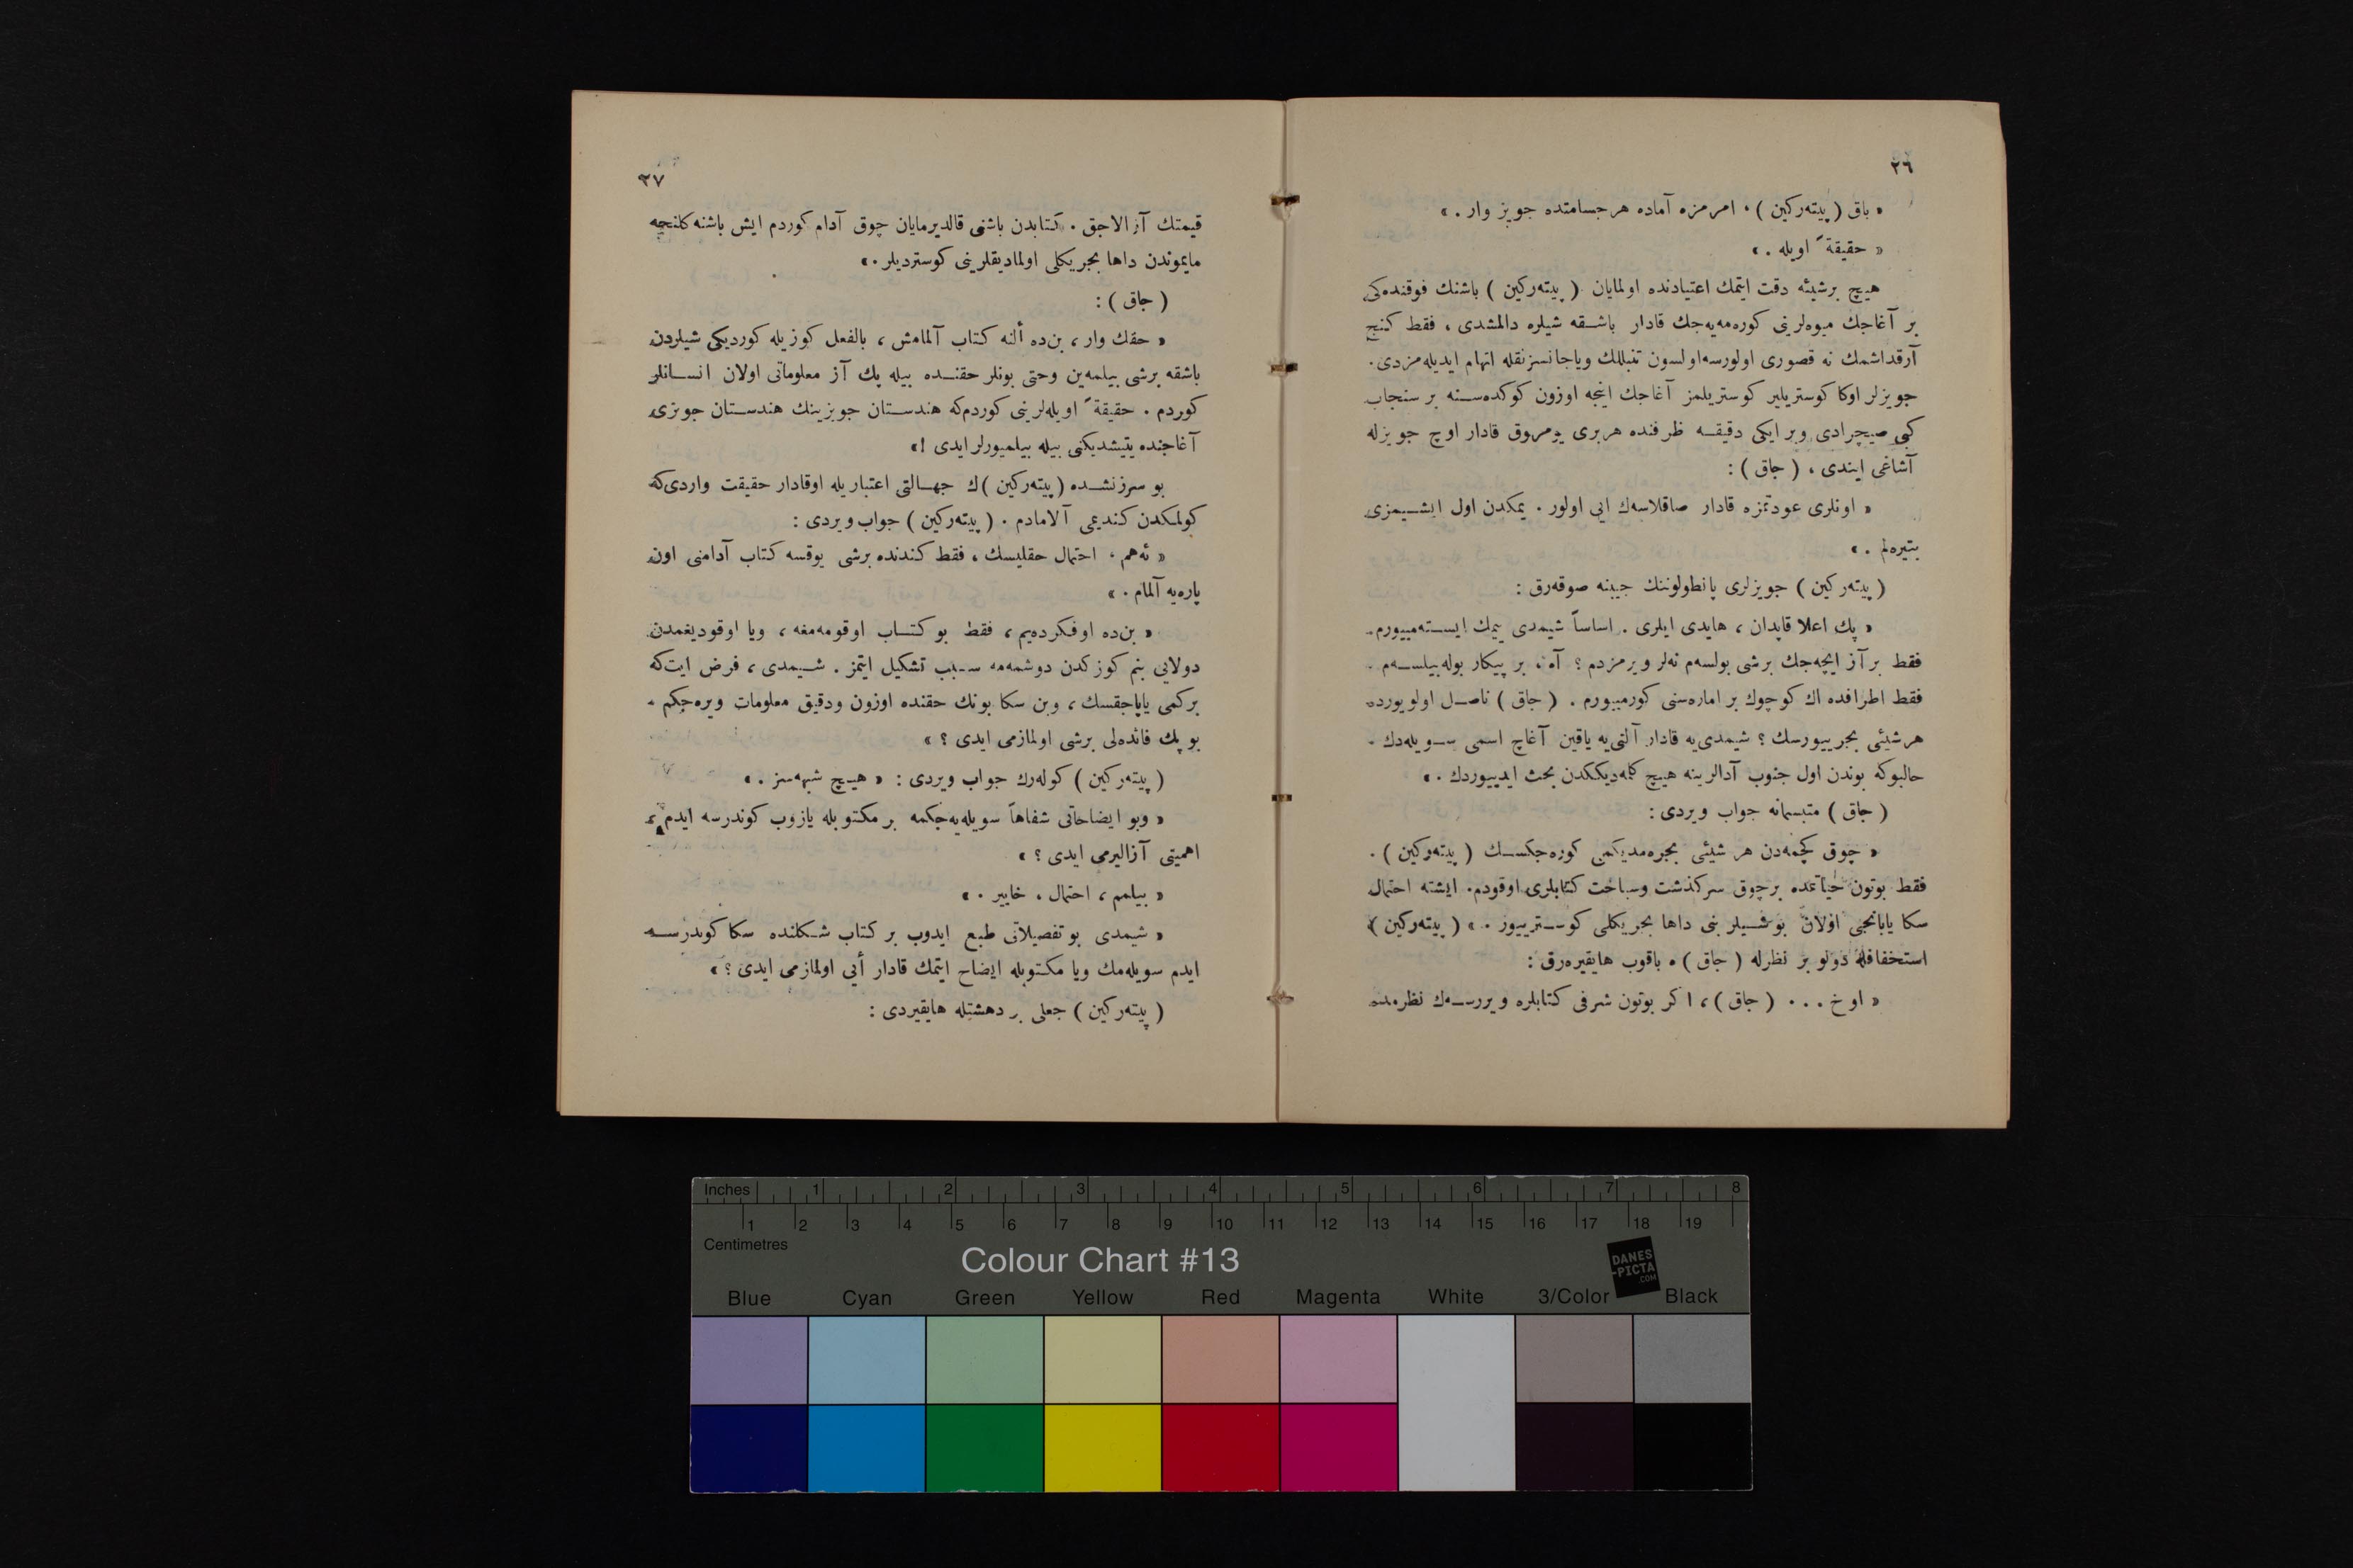 ٢٦
« باق ( پیته‌ركین ) ، امرمزه آماده هرجسامتده جویز وار . »
« حقیقةً اویله . »
هیچ برشیئه دقت ایتمك اعتیادنده اولمایان ( پیته‌ركین ) باشنك فوقنده‌كی
بر آغاجك میوه‌لرینی كوره‌مه‌یه‌جك قادار باشقه شیلره دالمشدی ، فقط كنج
آرقداشمك نه قصوری اولورسه‌اولسون تنبللك ویاجانسزلقله اتهام ایدیله‌مزدی .
جویزلر اوكا كوستریلیر كوستریلمز آغاجك اینجه اوزون كوكده‌سنه بر سنجاب
كبی صیچرادی وبر ایكی دقیقه ظرفنده هربری یومروق قادار اوچ جویزله
آشاغی ایندی ، ( جاق ) :
« اونلری عودتمزه قادار صاقلاسه‌ك ایی اولور . یمكدن اول ایشیمزی
بتیره‌لم . »
( پیته‌ركین ) جویزلری پانطولوننك جیبنه صوقه‌رق :
« پك اعلا قاپدان ، هایدی ایلری . اساساً شیمدی یمك ایسته‌مییورم .
فقط بر آز ایچه‌جك برشی بولسه‌م نه‌لر ویرمزدم ؟ آه ، بر پیكار بوله‌بیلسه‌م .
فقط اطرافده اك كوچوك بر اماره‌سنی كورمییورم . ( جاق ) ناصل اولویورده
هرشیئی بجرییورسك ؟ شیمدی‌یه قادار آلتی‌یه یاقین آغاج اسمی سویله‌دك .
حالبوكه بوندن اول جنوب آدالرینه هیچ كلمه‌دیككدن بحث ایدییوردك . »
( جاق ) متبسمانه جواب ویردی :
« چوق كچمه‌دن هر شیئی بجره‌مدیكمی كوره‌جكسك ( پیته‌ركین ) .
فقط بوتون حیاتمده برچوق سركذشت وسیاحت كتابلری اوقودم . ایشته احتمال
سكا یابانجی اولان بوشیلر بنی داها بجریكلی كوسترییور . » ( پیته‌ركین )
استخفافله دولو بر نظرله ( جاق ) ه باقوب هایقیره‌رق :
« اوخ . . . ( جاق ) ، اكر بوتون شرفی كتابلره ویررسه‌ك نظرمده
٢٧
قیمتك آزالاجق . كتابدن باشنی قالدیرمایان چوق آدام كوردم ایش باشنه كلنجه
مایموندن داها بجریكلی اولمادیقلرینی كوستردیلر . »
( جاق ) :
« حقك وار ، بن‌ده ألنه كتاب آلمامش ، بالفعل كوزیله كوردیكی شیلردن
باشقه برشی بیلمه‌ین وحتی بونلر حقنده بیله پك آز معلوماتی اولان انسانلر
كوردم . حقیقةً اویله‌لرینی كوردم‌كه هندستان جویزینك هندستان جویزی
آغاجنده یتیشدیكنی بیله بیلمیورلر ایدی ! »
بو سرزنشده ( پیته‌ركین ) ك جهالتی اعتباریله اوقادار حقیقت واردی‌كه
كولمكدن كندیمی آلامادم . ( پیته‌ركین ) جواب ویردی :
« ئه‌هم ، احتمال حقلیسك ، فقط كندنده برشی یوقسه كتاب آدامنی اون
پاره‌یه آلمام . »
« بن‌ده اوفكرده‌یم ، فقط بو كتاب اوقومه‌مغه ، ویا اوقودیغمدن
دولایی بنم كوزكدن دوشمه‌مه سبب تشكیل ایتمز . شیمدی ، فرض ایت‌كه
بركمی یاپاجقسك ، وبن سكا بونك حقنده اوزون ودقیق معلومات ویره‌جكم .
بو پك فائده‌لی برشی اولمازمی ایدی ؟ »
( پیته‌ركین ) كوله‌رك جواب ویردی : « هیچ شبهه‌سز . »
« وبو ایضاحاتی شفاهاً سویله‌یه‌جكمه بر مكتوبله یازوب كوندرسه ایدم ،
اهمیتی آزالیرمی ایدی ؟ »
« بیلمم ، احتمال . خاییر . »
« شیمدی بو تفصیلاتی طبع ایدوب بر كتاب شكلنده سكا كوندرسه
ایدم سویله‌مك ویا مكتوبله ایضاح ایتمك قادار أیی اولمازمی ایدی ؟ »
( پیته‌ركین ) جعلی بر دهشتله هایقیردی :
Inches 1 2 3 4 5 6 7 8
1 2 3 4 5 6 7 8 9 10 11 12 13 14 15 16 17 18 19
Centimetres
Colour Chart #13
DANES
-PICTA
.COM
Blue Cyan Green Yellow Red Magenta White 3/Color Black